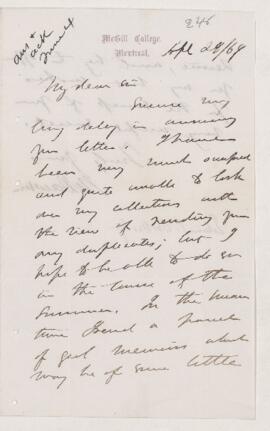 246
ans &
ack
McGill College,
Montreal,
Apl 29/69
My dear Sir
Excuse my
long delay in answering
your letter. I have
been very much occupied
and quite unable to look
over my collections with
the view of sending you
any duplicates; but I
hope to be able to do so
in the course of the
Summer. In the mean
time I send a parcel
of geol memoirs which
may be of some little